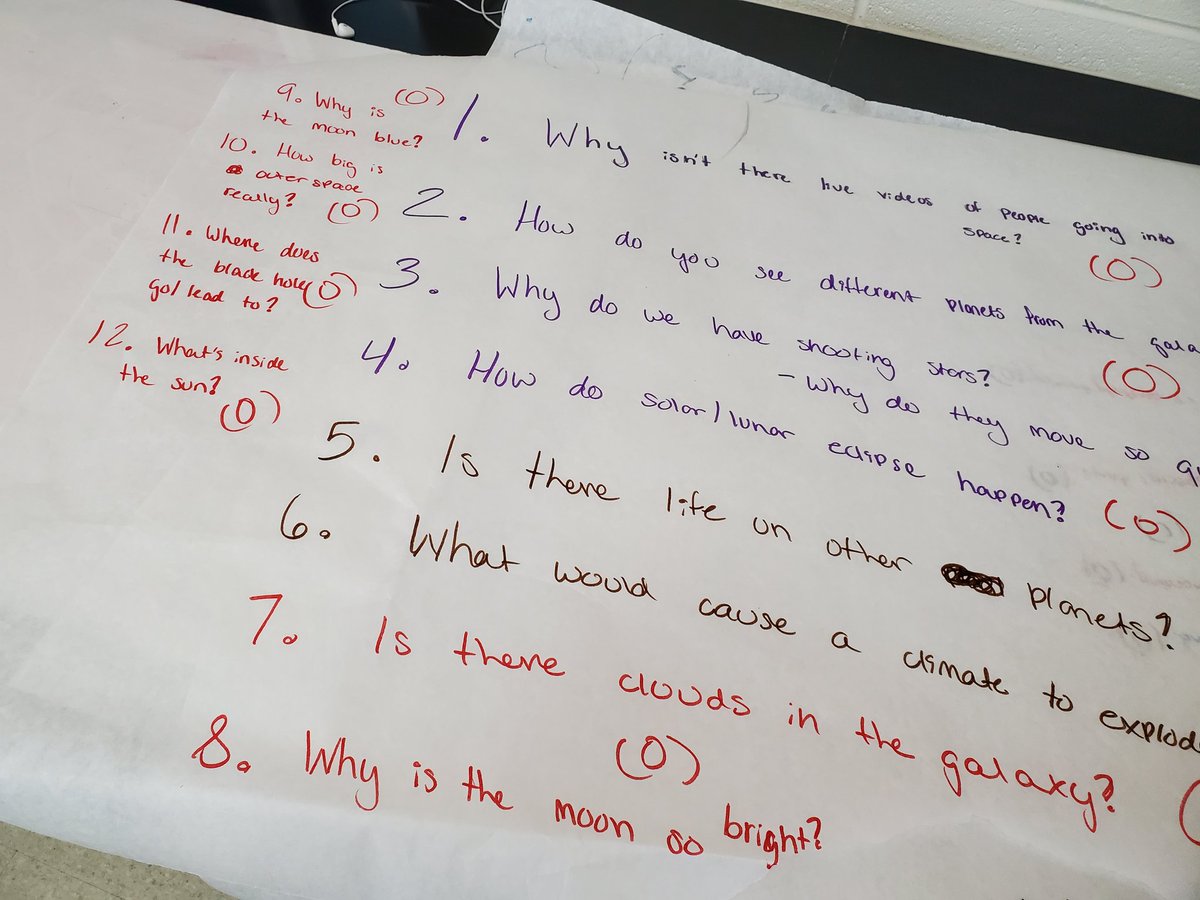 1. Why isn't there live videos of people going into
space? (O)
2. How do you see different planets from the
(O)
3. Why do we have shooting stars?
- Why do they move so
4. How do solar/lunar eclipse happen? (O)
5. Is there life on other planets?
6. What would cause a climate to
7. Is there clouds in the galaxy?
8. Why is the moon so bright?
(O)
9. Why is (O)
the moon blue?
10. How big is
outer space
really? (O)
11. Where does
the black hole (O)
go/lead to?
12. What's inside
the sun?
(O)